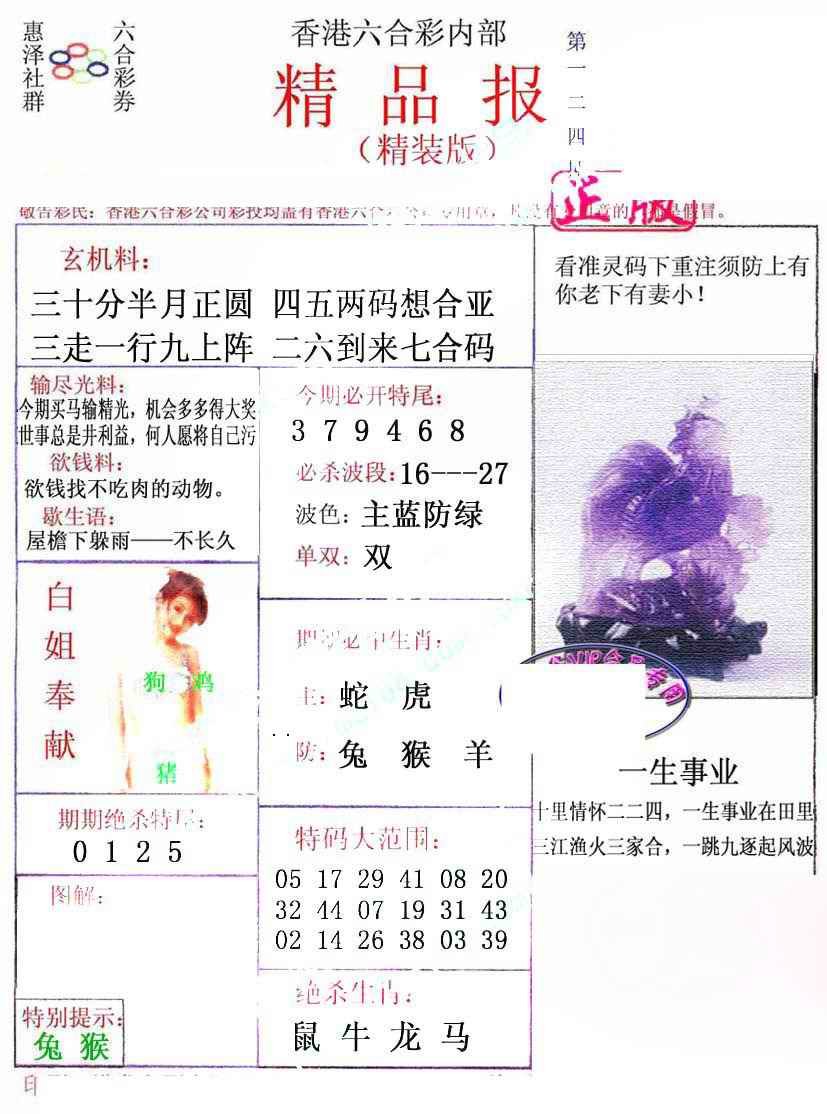 惠泽社群
六合彩券
香港六合彩内部
第一二四
精品报
（精装版）
正版
敬告彩民：香港六合彩公司彩投均盖有香港六合
假冒。
玄机料：
三十分半月正圆 四五两码想合亚
三走一行九上阵 二六到来七合码
看准灵码下重注须防上有
你老下有妻小！
输尽光料：
今期买马输精光，机会多多得大奖
世事总是井利益，何人愿将自己污
欲钱料：
欲钱找不吃肉的动物。
歇生语：
屋檐下躲雨——不长久
今期必开特尾：
3 7 9 4 6 8
必杀波段：16---27
波色：主蓝防绿
单双：双
白姐奉献
狗 鸡
猪
期期必中生肖：
主：蛇 虎
防：兔 猴 羊
一生事业
十里情怀二二四，一生事业在田里
三江渔火三家合，一跳九逐起风波
期期绝杀特尾：
0 1 2 5
特码大范围：
05 17 29 41 08 20
32 44 07 19 31 43
02 14 26 38 03 39
图解：
特别提示：
兔 猴
绝杀生肖：
鼠 牛 龙 马